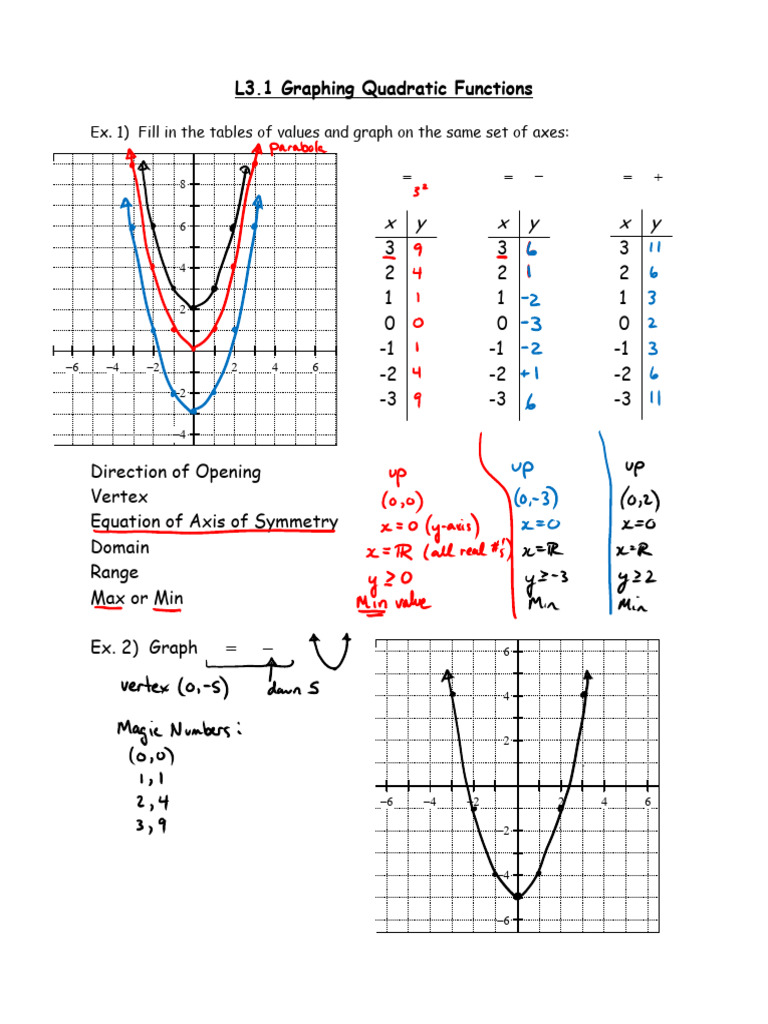 L3.1 Graphing Quadratic Functions
Ex. 1) Fill in the tables of values and graph on the same set of axes:
parabola
= = − = +
3²
8
6
4
2
−6 −4 −2 2 4 6
−2
−4
x y x y x y
3 9 3 6 3 11
2 4 2 1 2 6
1 1 1 -2 1 3
0 0 0 -3 0 2
-1 1 -1 -2 -1 3
-2 4 -2 +1 -2 6
-3 9 -3 6 -3 11
Direction of Opening up up up
Vertex (0,0) (0,-3) (0,2)
Equation of Axis of Symmetry x=0 (y-axis) x=0 x=0
Domain x=ℝ (all real #'s) x=ℝ x=ℝ
Range y≥0 y≥-3 y≥2
Max or Min Min value Min Min
Ex. 2) Graph = −
vertex (0,-5) down 5
Magic Numbers:
(0,0)
1,1
2,4
3,9
6
4
2
−6 −4 −2 2 4 6
−2
−4
−6